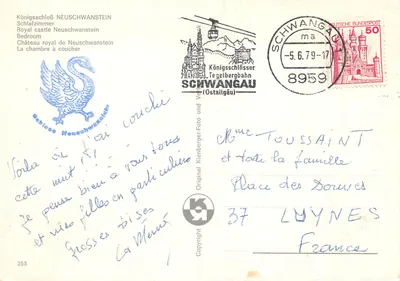 Königsschloß NEUSCHWANSTEIN
Schlafzimmer
Royal castle Neuschwanstein
Bedroom
Château royal de Neuschwanstein
La chambre à coucher
Königsschlösser
Tegelbergbahn
SCHWANGAU
(Ostallgäu)
SCHWANGAU
ma
-5.6.79-17
8959
DEUTSCHE BUNDESPOST
50
Schloss Neuschwanstein
Voilà où j'ai couché
cette nuit !!!
Je pense bien à vous tous
et vos filles en particulier
Grosses bises
La Mémé
Copyright
Original Kienberger-Foto und V
Mme TOUSSAINT
et toute la famille
Place des Douves
37 LUYNES
France